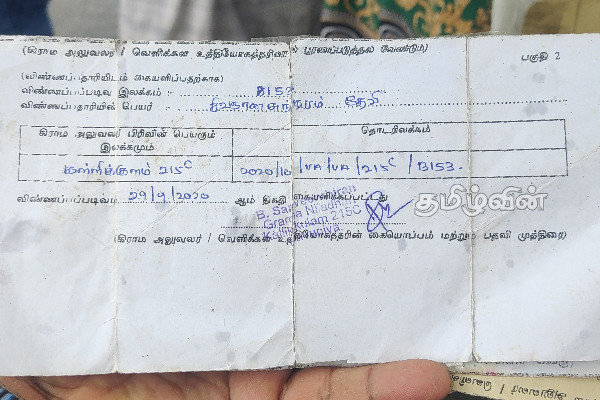 (கிராம அலுவலர் / வெளிக்கள உத்தியோகத்தரினால் பூரணப்படுத்தல் வேண்டும்)
பகுதி 2
(விண்ணப்பதாரியிடம் கையளிப்பதற்காக)
விண்ணப்பப்படிவ இலக்கம் : B153
விண்ணப்பதாரியின் பெயர் : தேவி
கிராம அலுவலர் பிரிவின் பெயரும் இலக்கமும்
தொடரிலக்கம்
கள்ளிக்குளம் 215C
2020/10/VA/VA/215C/B153.
விண்ணப்பப்படிவம் 29/9/2020 ஆம் திகதி கையளிக்கப்பட்டது
தமிழ்வின்
Grama Niladhari
Kallikkulam 215C
Vavuniya
(கிராம அலுவலர் / வெளிக்கள உத்தியோகத்தரின் கையொப்பம் மற்றும் பதவி முத்திரை)